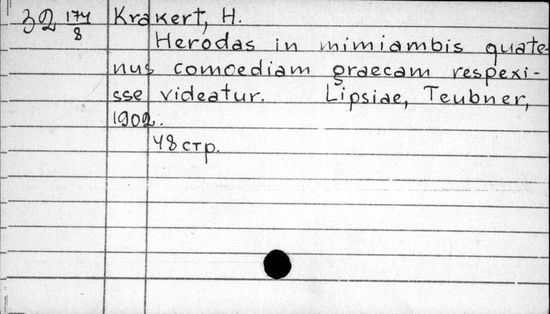 32 174/8 Krakert, H.
Herodas in mimiambis quate-
nus comoediam graecam respexi-
sse videatur. Lipsiae, Teubner,
1902.
48 стр.